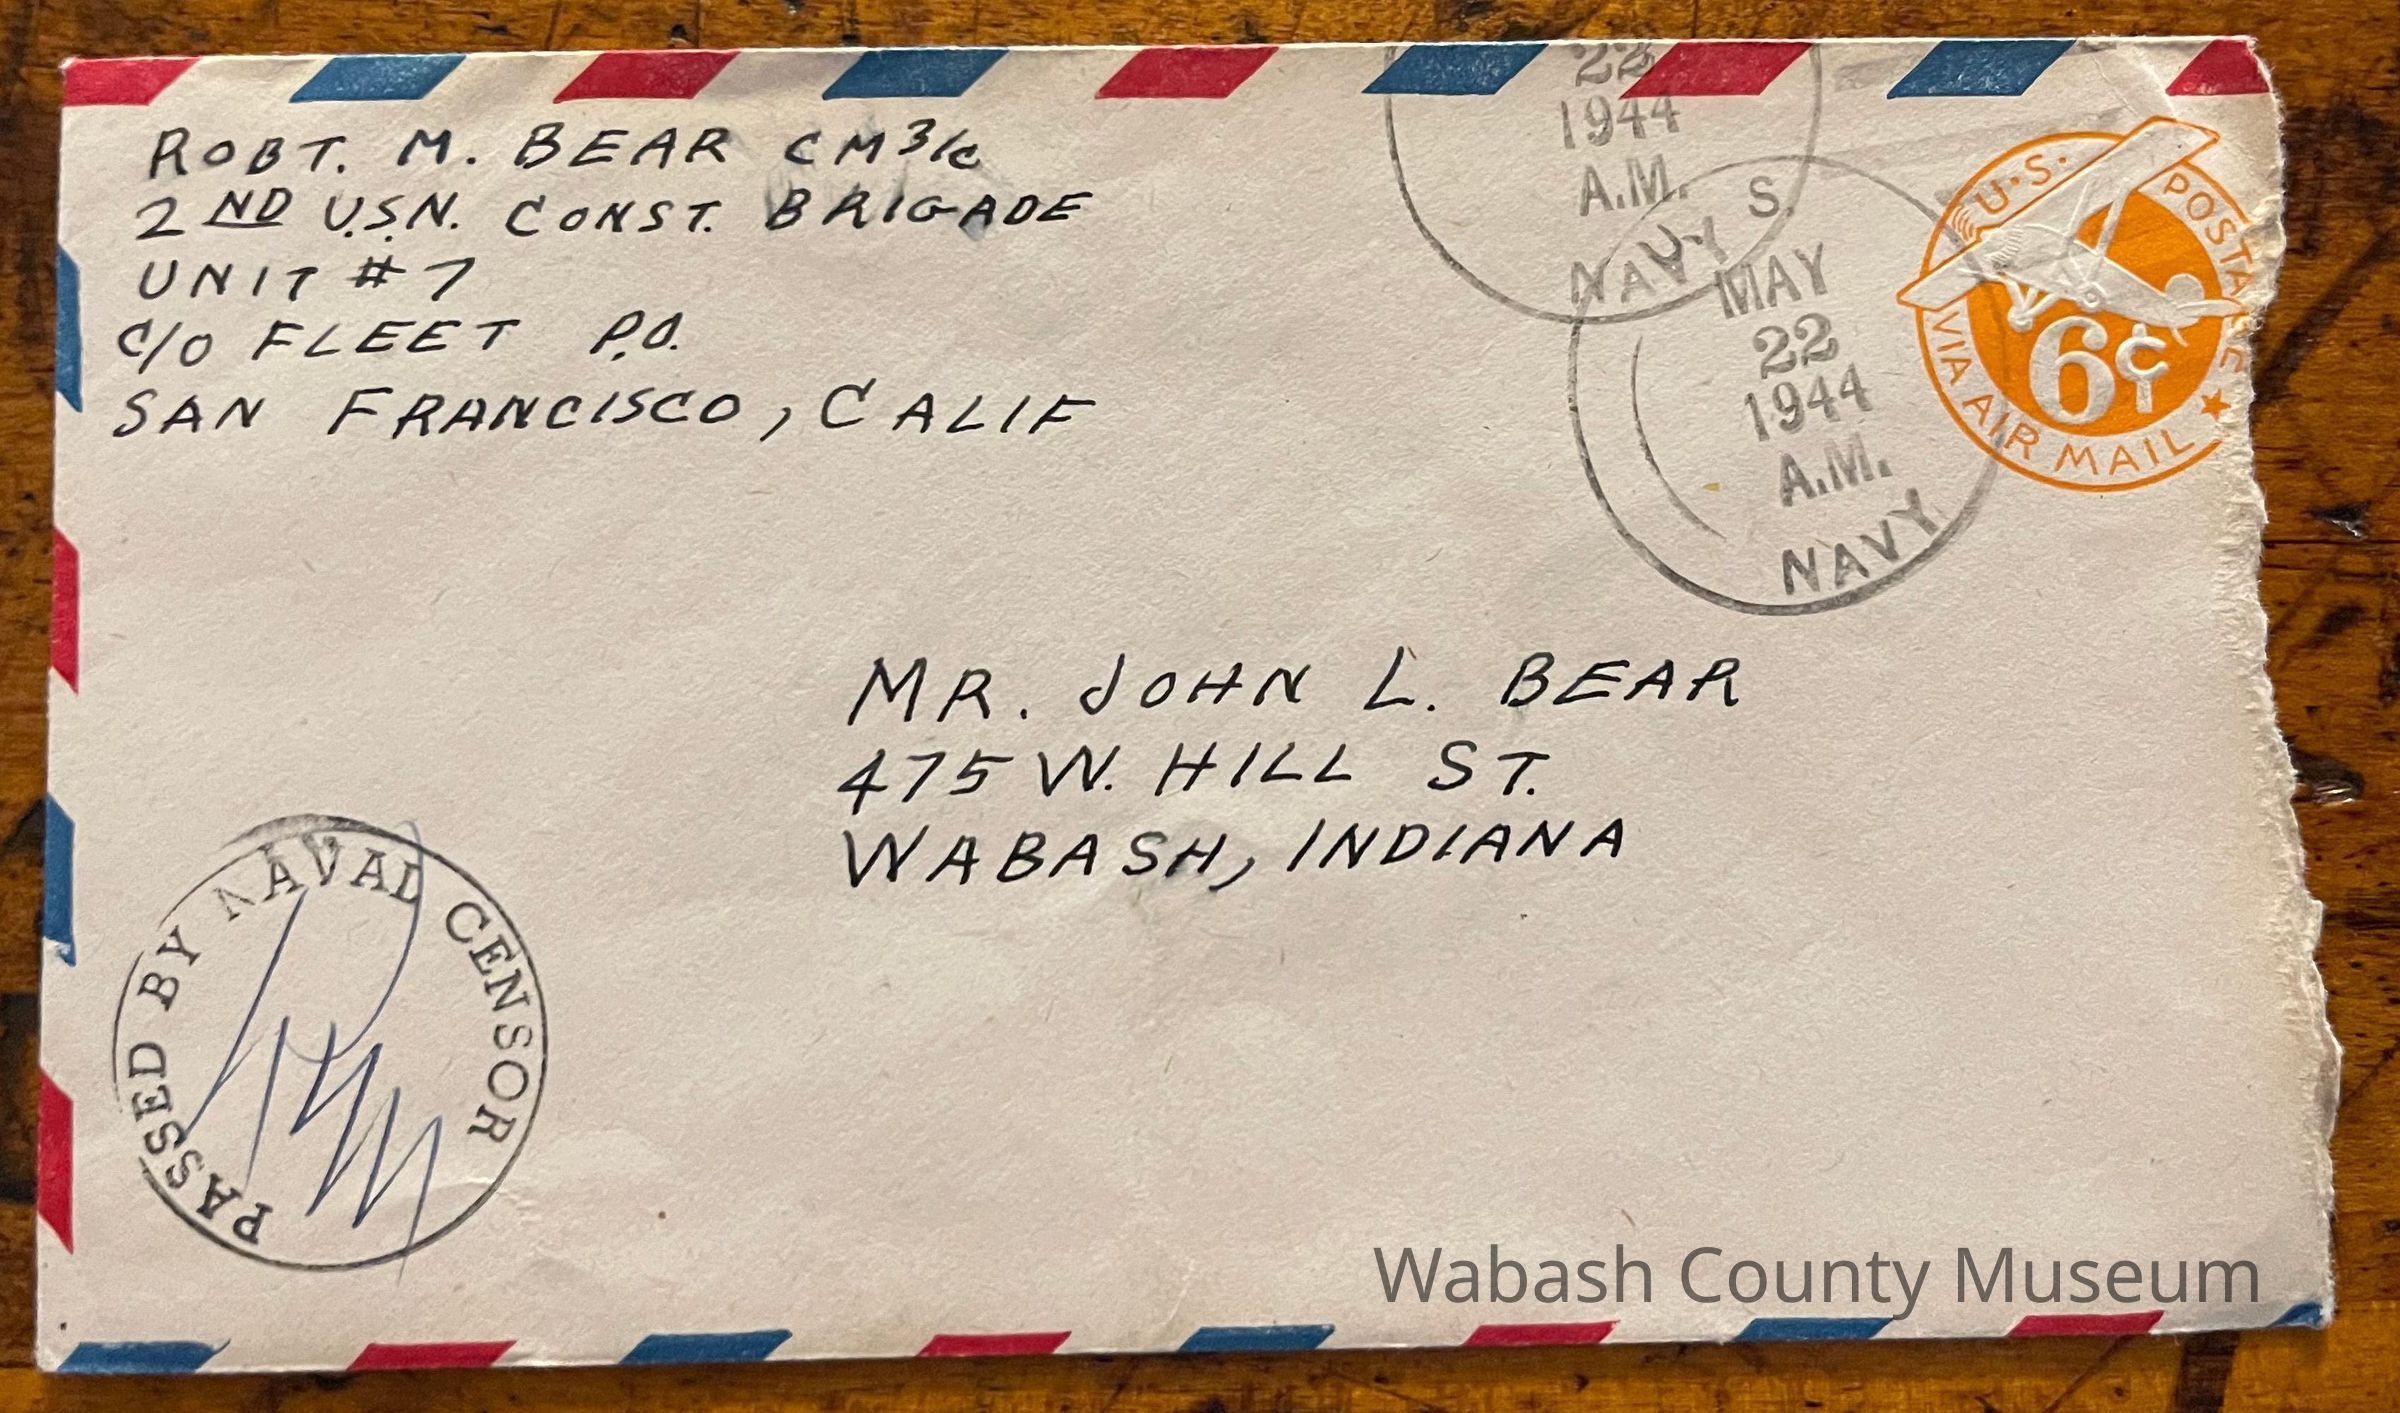 ROBT. M. BEAR CM 3/c
2ND U.S.N. CONST. BRIGADE
UNIT #7
C/O FLEET P.O.
SAN FRANCISCO, CALIF
22
1944
A.M.
NAVY
U.S. POSTAGE
VIA AIR MAIL
6¢
U. S.
MAY
22
1944
A.M.
NAVY
MR. JOHN L. BEAR
475 W. HILL ST.
WABASH, INDIANA
PASSED BY NAVAL CENSOR
Wabash County Museum